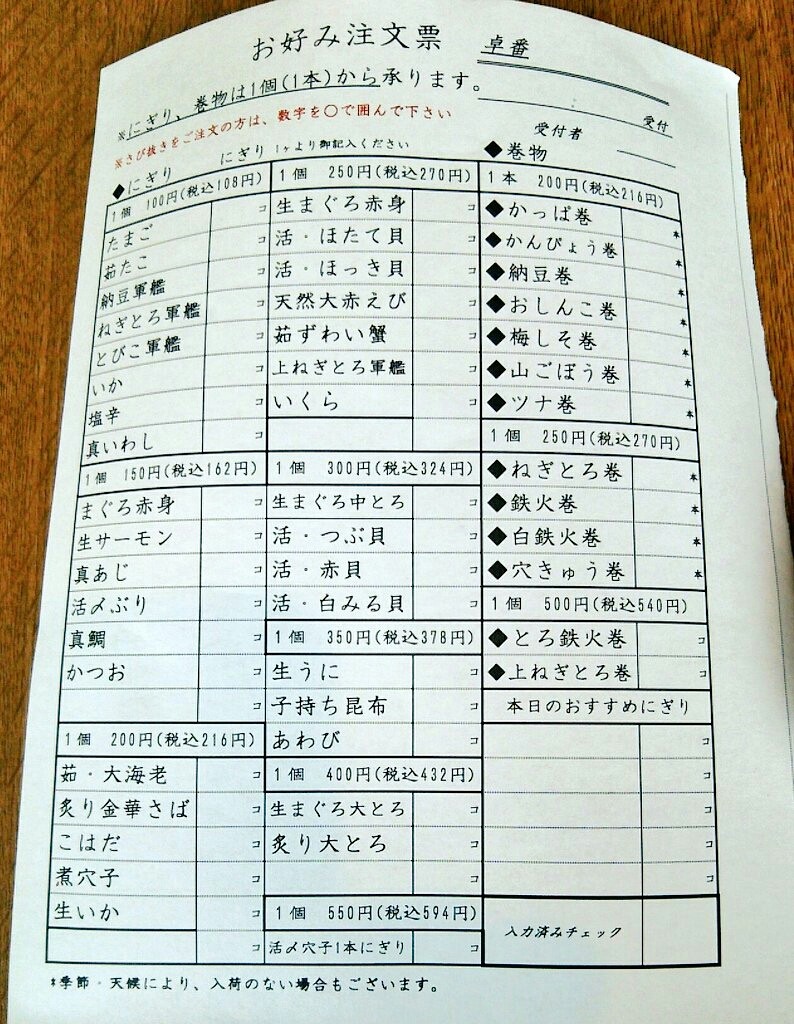 お好み注文票
卓番
※にぎり、巻物は1個(1本)から承ります。
※さび抜きをご注文の方は、数字を〇で囲んで下さい
受付
受付者
◆にぎり
にぎり 1ヶより御記入ください
1個 100円(税込108円)
たまご コ
茹たこ コ
納豆軍艦 コ
ねぎとろ軍艦 コ
とびこ軍艦 コ
いか コ
塩辛 コ
真いわし コ
1個 150円(税込162円)
まぐろ赤身 コ
生サーモン コ
真あじ コ
活〆ぶり コ
真鯛 コ
かつお コ
コ
1個 200円(税込216円)
茹・大海老 コ
炙り金華さば コ
こはだ コ
煮穴子 コ
生いか コ
コ
1個 250円(税込270円)
生まぐろ赤身 コ
活・ほたて貝 コ
活・ほっき貝 コ
天然大赤えび コ
茹ずわい蟹 コ
上ねぎとろ軍艦 コ
いくら コ
コ
1個 300円(税込324円)
生まぐろ中とろ コ
活・つぶ貝 コ
活・赤貝 コ
活・白みる貝 コ
1個 350円(税込378円)
生うに コ
子持ち昆布 コ
あわび コ
1個 400円(税込432円)
生まぐろ大とろ コ
炙り大とろ コ
コ
1個 550円(税込594円)
活〆穴子1本にぎり コ
◆巻物
1本 200円(税込216円)
◆かっぱ巻 本
◆かんぴょう巻 本
◆納豆巻 本
◆おしんこ巻 本
◆梅しそ巻 本
◆山ごぼう巻 本
◆ツナ巻 本
1個 250円(税込270円)
◆ねぎとろ巻 本
◆鉄火巻 本
◆白鉄火巻 本
◆穴きゅう巻 本
1個 500円(税込540円)
◆とろ鉄火巻 コ
◆上ねぎとろ巻 コ
本日のおすすめにぎり
コ
コ
コ
コ
コ
入力済みチェック
*季節・天候により、入荷のない場合もございます。